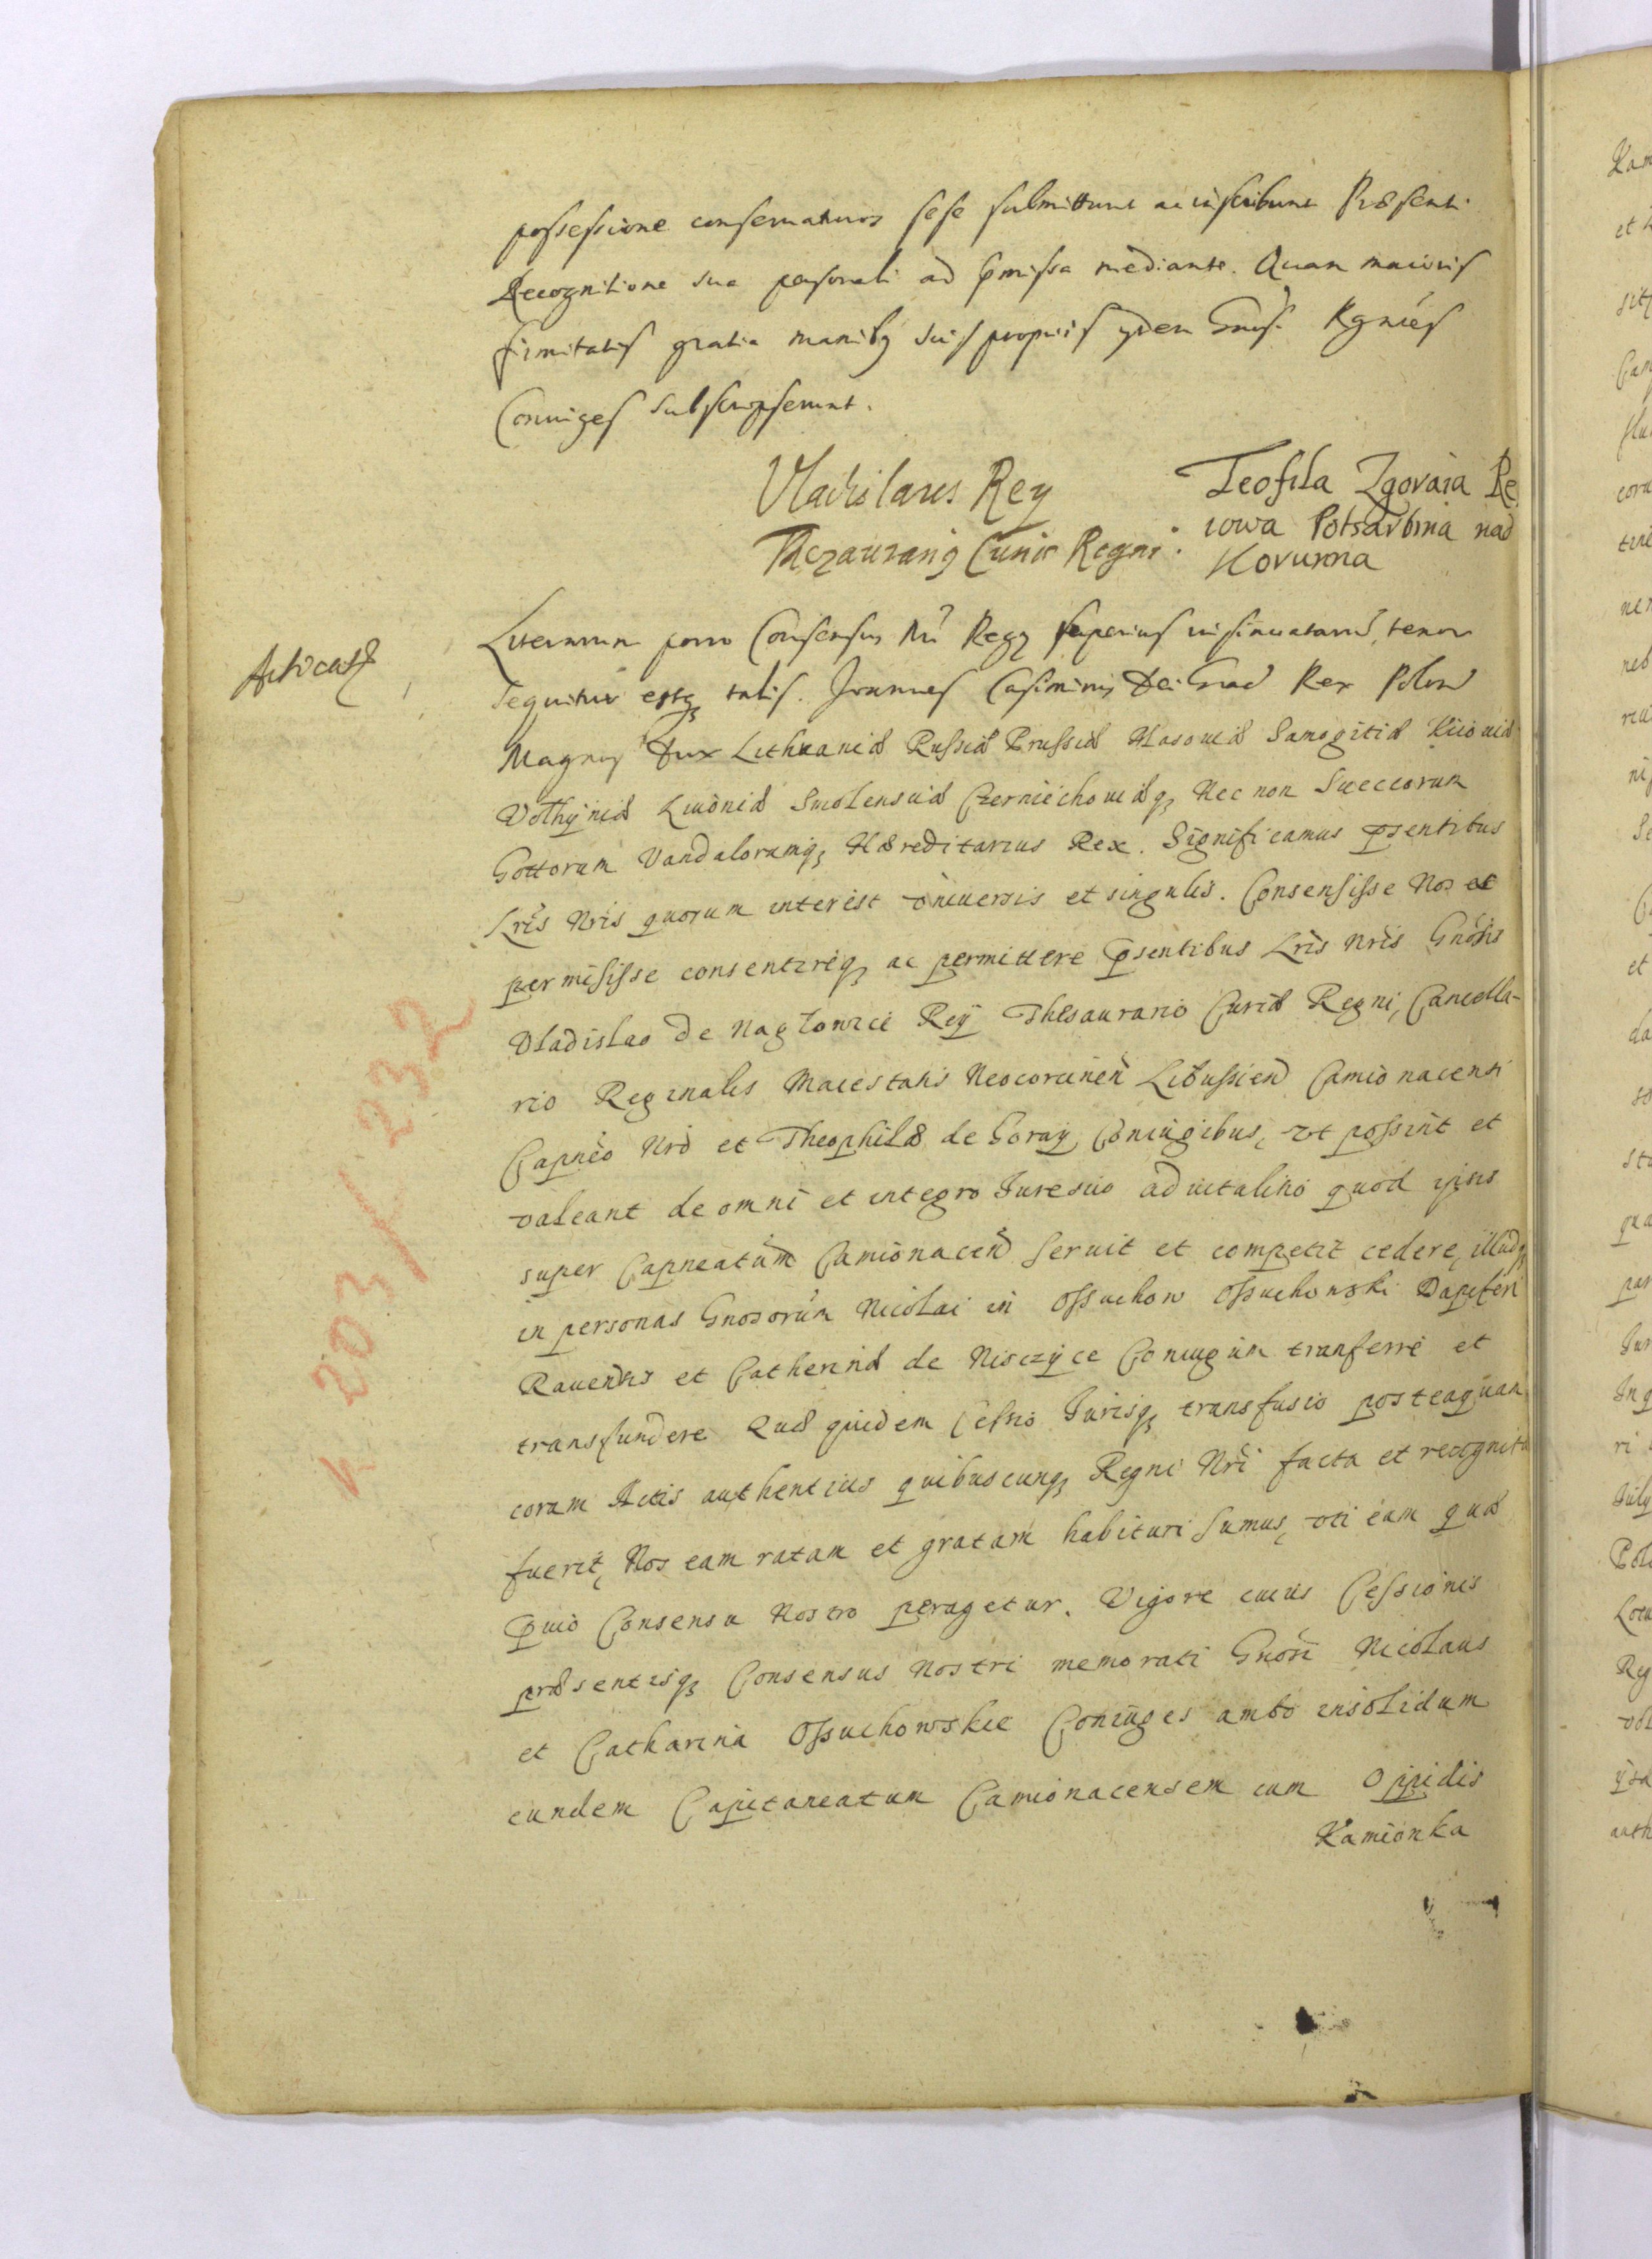 possessione conservaturos sese submittunt ac inscribunt Præsenti
Recognitione sua personali ad p̃missa mediante. Quam maioris
firmitatis gratia manibq suis propriis ijdem Gnosi Rgnces
Coniuges subscripserunt.
Vladislaus Rey
Thezaurariq Curiæ Regni.
Teofila Zgoraia Re
iowa Potskarbina nad
Kovurna
Literarum porro Consensus Nri Regq superius insinuatarũ, tenor
sequitur estq talis. Joannes Casimirus Dei Gra Rex Polon
Magnus Dux Lithuaniæ Russiæ Prussiæ Masouiæ Samogitiæ Kiiouiæ
Volhyniæ Liuoniæ Smolensciæ Czerniechouiæq, Nec non Sueccorum
Gottorum Vandalorumq, Hæreditarius Rex. Significamus p̃sentibus
Lris Nris quorum interest vniuersis et singulis. Consensisse Nos et
permisisse consentireq, ac permittere p̃sentibus Lris Nris Gnosis
Vladislao de Nagłowice Reÿ Thesaurario Curiæ Regni, Cancella-
rio Reginalis Maiestatis Neocorcinen Libussien Camionacensi
Capneo Nro et Theophilæ de Goraÿ Coniugibus, vt possint et
valeant de omni et integro Iure suo aduitalitio quod ipsis
super Capneatum Camionacen seruit et competit cedere, illudq,
in personas Gnosorum Nicolai in Ossuchow Ossuchowski Dapiferi
Rauensis et Catherinæ de Nisczÿce Coniugum tranferre et
transfundere Quæ quidem Cessio Iurisq, transfusio posteaquam
coram Actis authenticis quibuscunq, Regni Nri facta et recognita
fuerit, Nos eam ratam et gratam habituri sumus, vti eam quæ
p̃uio Consensu Nostro peragetur. Vigore cuius Cessionis
præsentisq, Consensus Nostri memorati Gnosi Nicolaus
et Catharina Ossuchowskie Coniuges ambo insolidum
eundem Capitaneatum Camionacensem cum Oppidis
Kamionka
k 203/232